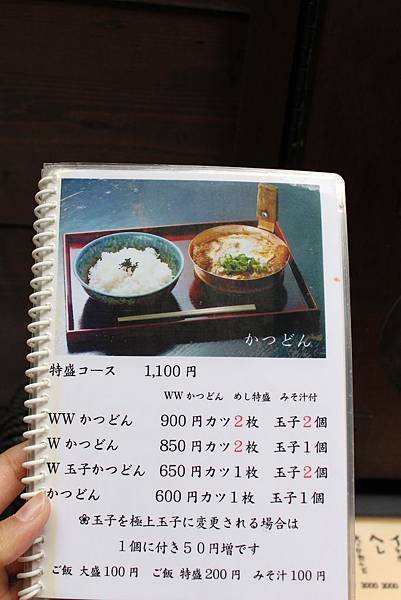 かつどん
特盛コース 1,100円
WWかつどん めし特盛 みそ汁付
WWかつどん 900円カツ2枚 玉子2個
Wかつどん 850円カツ2枚 玉子1個
W玉子かつどん 650円カツ1枚 玉子2個
かつどん 600円カツ1枚 玉子1個
❀玉子を極上玉子に変更される場合は
1個に付き50円増です
ご飯 大盛100円 ご飯 特盛200円 みそ汁100円